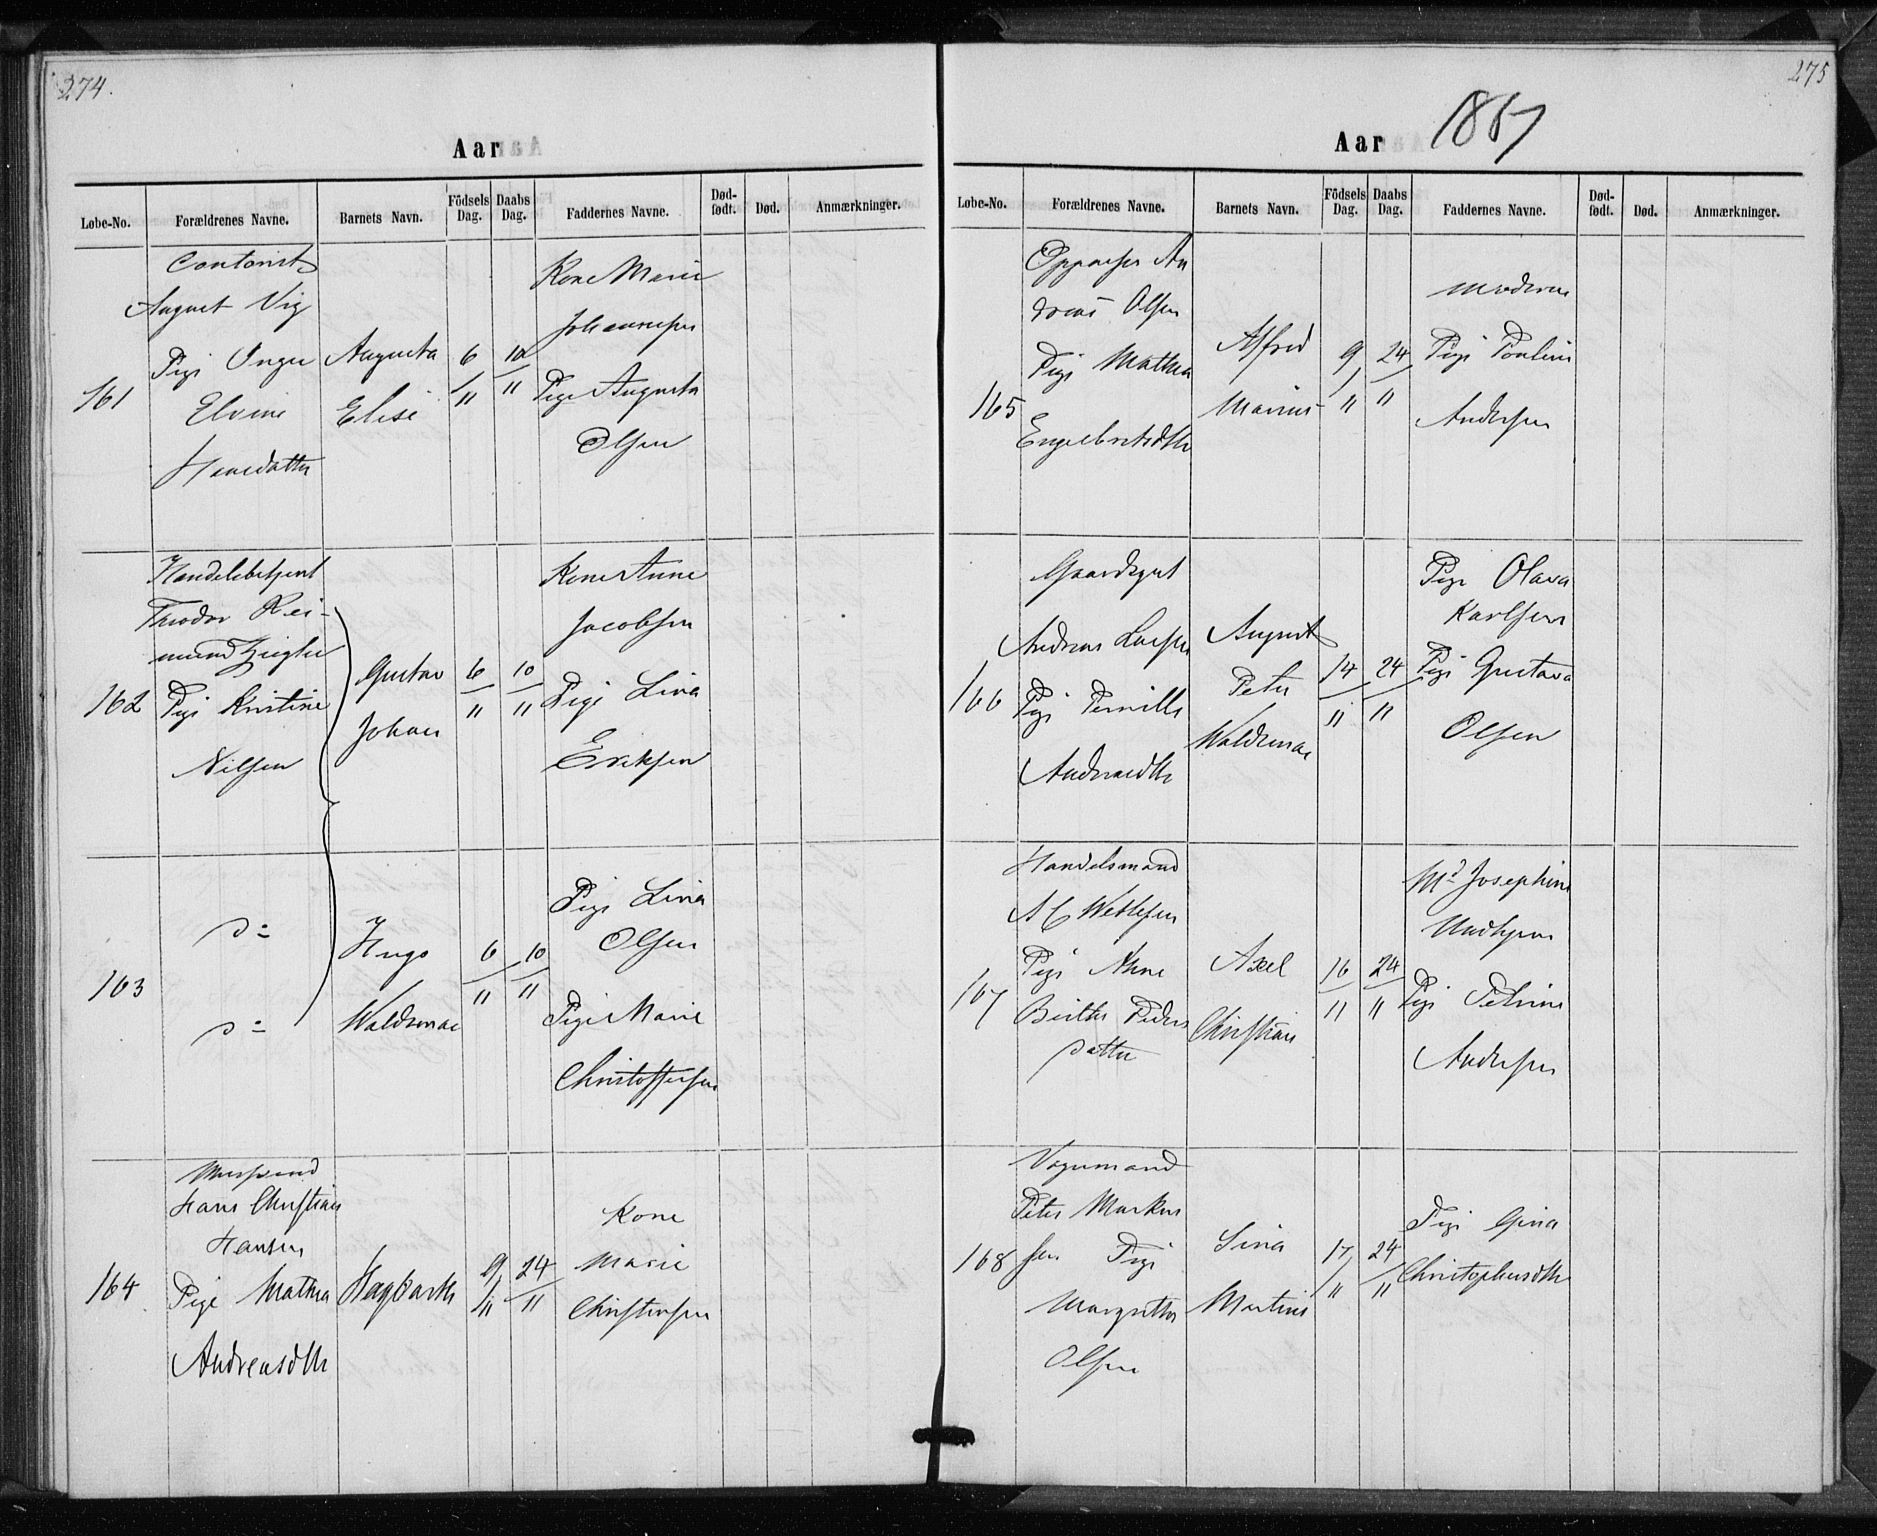 274.
Aar
Løbe-No. Forældrenes Navne. Barnets Navn. Födsels Dag. Daabs Dag. Faddernes Navne. Død-født. Død. Anmærkninger.
161
Contorist
August Vig
Pige Inger
Elvine
Hansdatter
Augusta
Elise
6/11
10/11
Kone Marie
Johannesen
Pige Augusta
Olsen
162
Handelsbetjent
Theodor Rei-
mund Ziegler
Pige Kristine
Nilsen
Gustav
Johan
6/11
10/11
Kone Anne
Jacobsen
Pige Lina
Eriksen
163
do
do
Hugo
Waldemar
6/11
10/11
Pige Lina
Olsen
Pige Marie
Christoffersen
164
Hans Christian
Hansen
Pige Mathea
Andreasdtr
Hagbarth
9/11
24/11
Kone
Marie
Christensen
275
Aar 1867
Løbe-No. Forældrenes Navne. Barnets Navn. Födsels Dag. Daabs Dag. Faddernes Navne. Død-født. Død. Anmærkninger.
165
Oppasser An
dreas Olsen
Pige Mathea
Engelbretsdtr
Alfred
Marius
9/11
24/11
Moderen
Pige Pouline
Andersen
166
Gaardsgut
Andreas Larsen
Pige Pernille
Andersdtr
August
Peter
Waldemar
14/11
24/11
Pige Olava
Karlsen
Pige Gustava
Olsen
167
Handelsmand
A C Wetlesen
Pige Anne
Birthe Peders
datter
Axel
Christian
16/11
24/11
Md Josephine
Pige Petrine
Andersen
168
Vognmand
Peter Markus
sen Pige
Margrethe
Olsen
Sina
Martine
17/11
24/11
Pige Gina
Christophersdtr